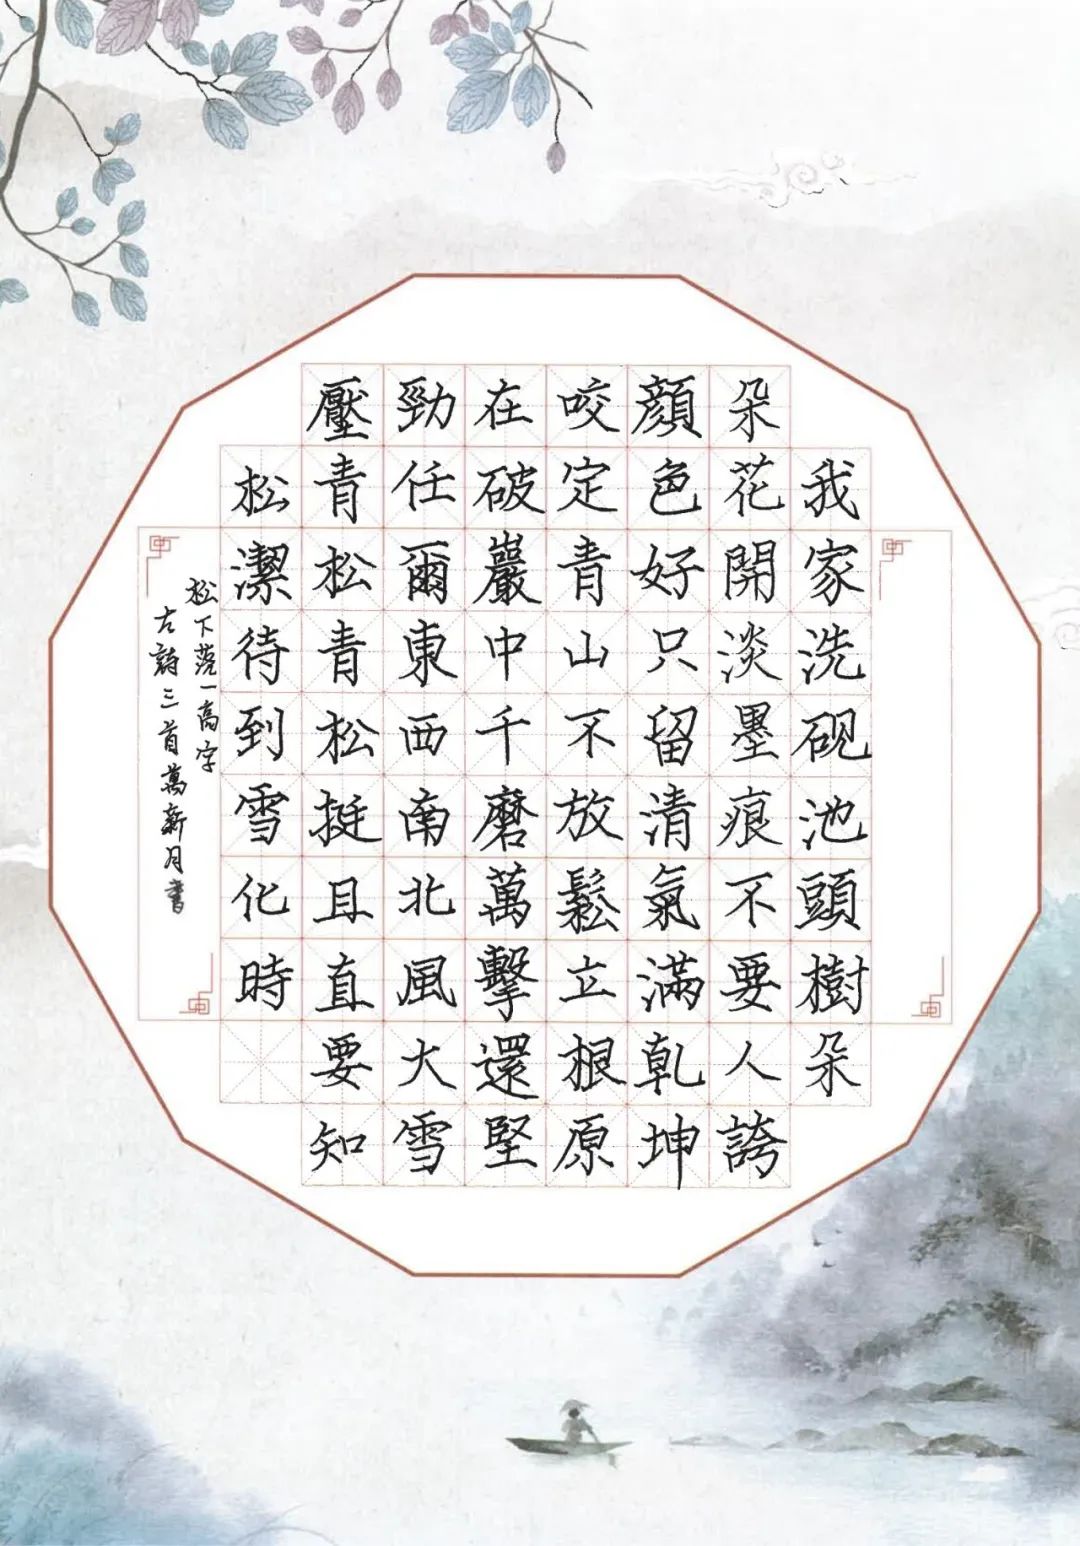 我家洗硯池頭樹朵
朵花開淡墨痕不要人誇
顏色好只留清氣滿乾坤
咬定青山不放鬆立根原
在破巖中千磨萬擊還堅
勁任爾東西南北風大雪
壓青松青松挺且直要知
松潔待到雪化時
松下落一高字
古詩三首萬新月書